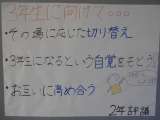 3年生に向けて・・・
・その場に応じた切り替え
・3年生になるという自覚をもとう!
・お互いに高め合う
2年評議